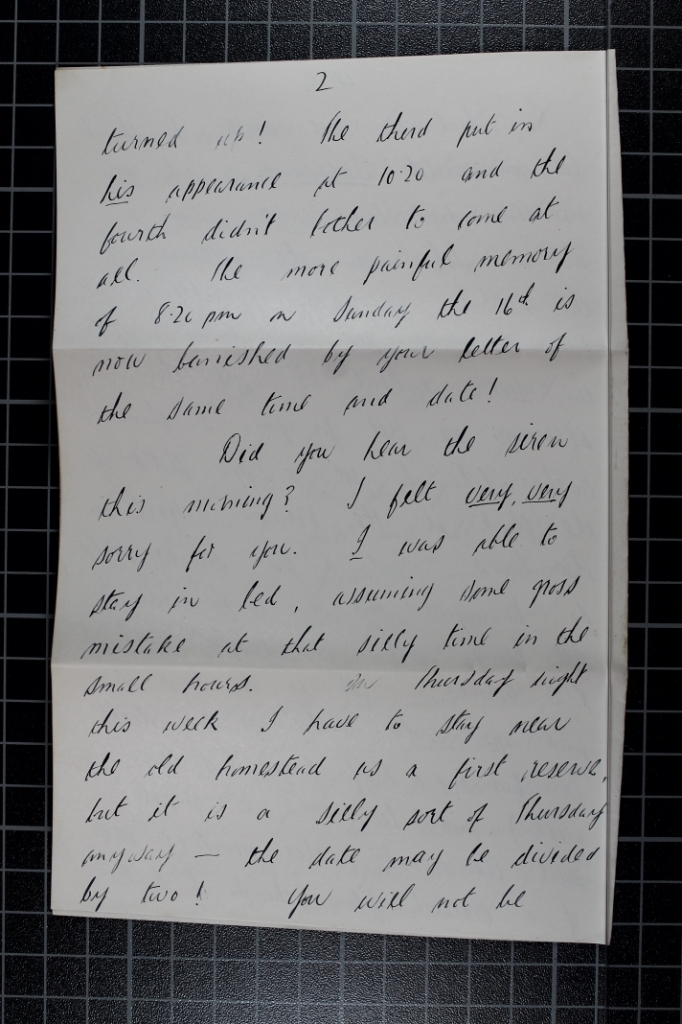 2
turned up! The third put in
his appearance at 10.20 and the
fourth didn't bother to come at
all. The more painful memory
of 8.20 pm on Sunday the 16th is
now banished by your letter of
the same time and date!
Did you hear the siren
this morning? I felt very, very
sorry for you. I was able to
stay in bed, assuming some gross
mistake at that silly time in the
small hours. On Thursday night
this week I have to stay near
the old homestead as a first reserve,
but it is a silly sort of Thursday
anyway — the date may be divided
by two! You will not be